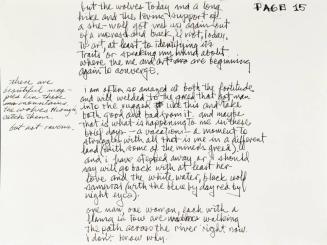 PAGE 15
but the wolves today and a long
hike and the loving support of
a she-wolf got me up again out
of a morass and back, if not, today,
to art, at least to identifying its
traits or speaking my mind about
where the me and art are beginning
again to converge.
these are
beautiful
maples here, these
the wolves through
catch them.
but not ravens.
i am often so amazed at both the fortitude
and will welded to the greed that got man
into the rugged like this and take
both good and bad from it. and maybe
that is what is happening to me in these
brief days — a vacation — a moment to
struggle with all that is me in a different
land (with some of the miner's greed).
and i have stepped away or i should
say will go back with at least her
love and the white water, black wolf
samovar (with the blue by day red by
night eyes).
one man, one woman, each with a
in tow are walking
the path across the river right now.
i don't know why.